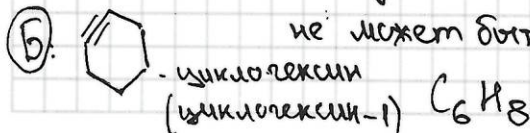 Б. не может быт
- циклогексин
(циклогексин-1) C₆H₈